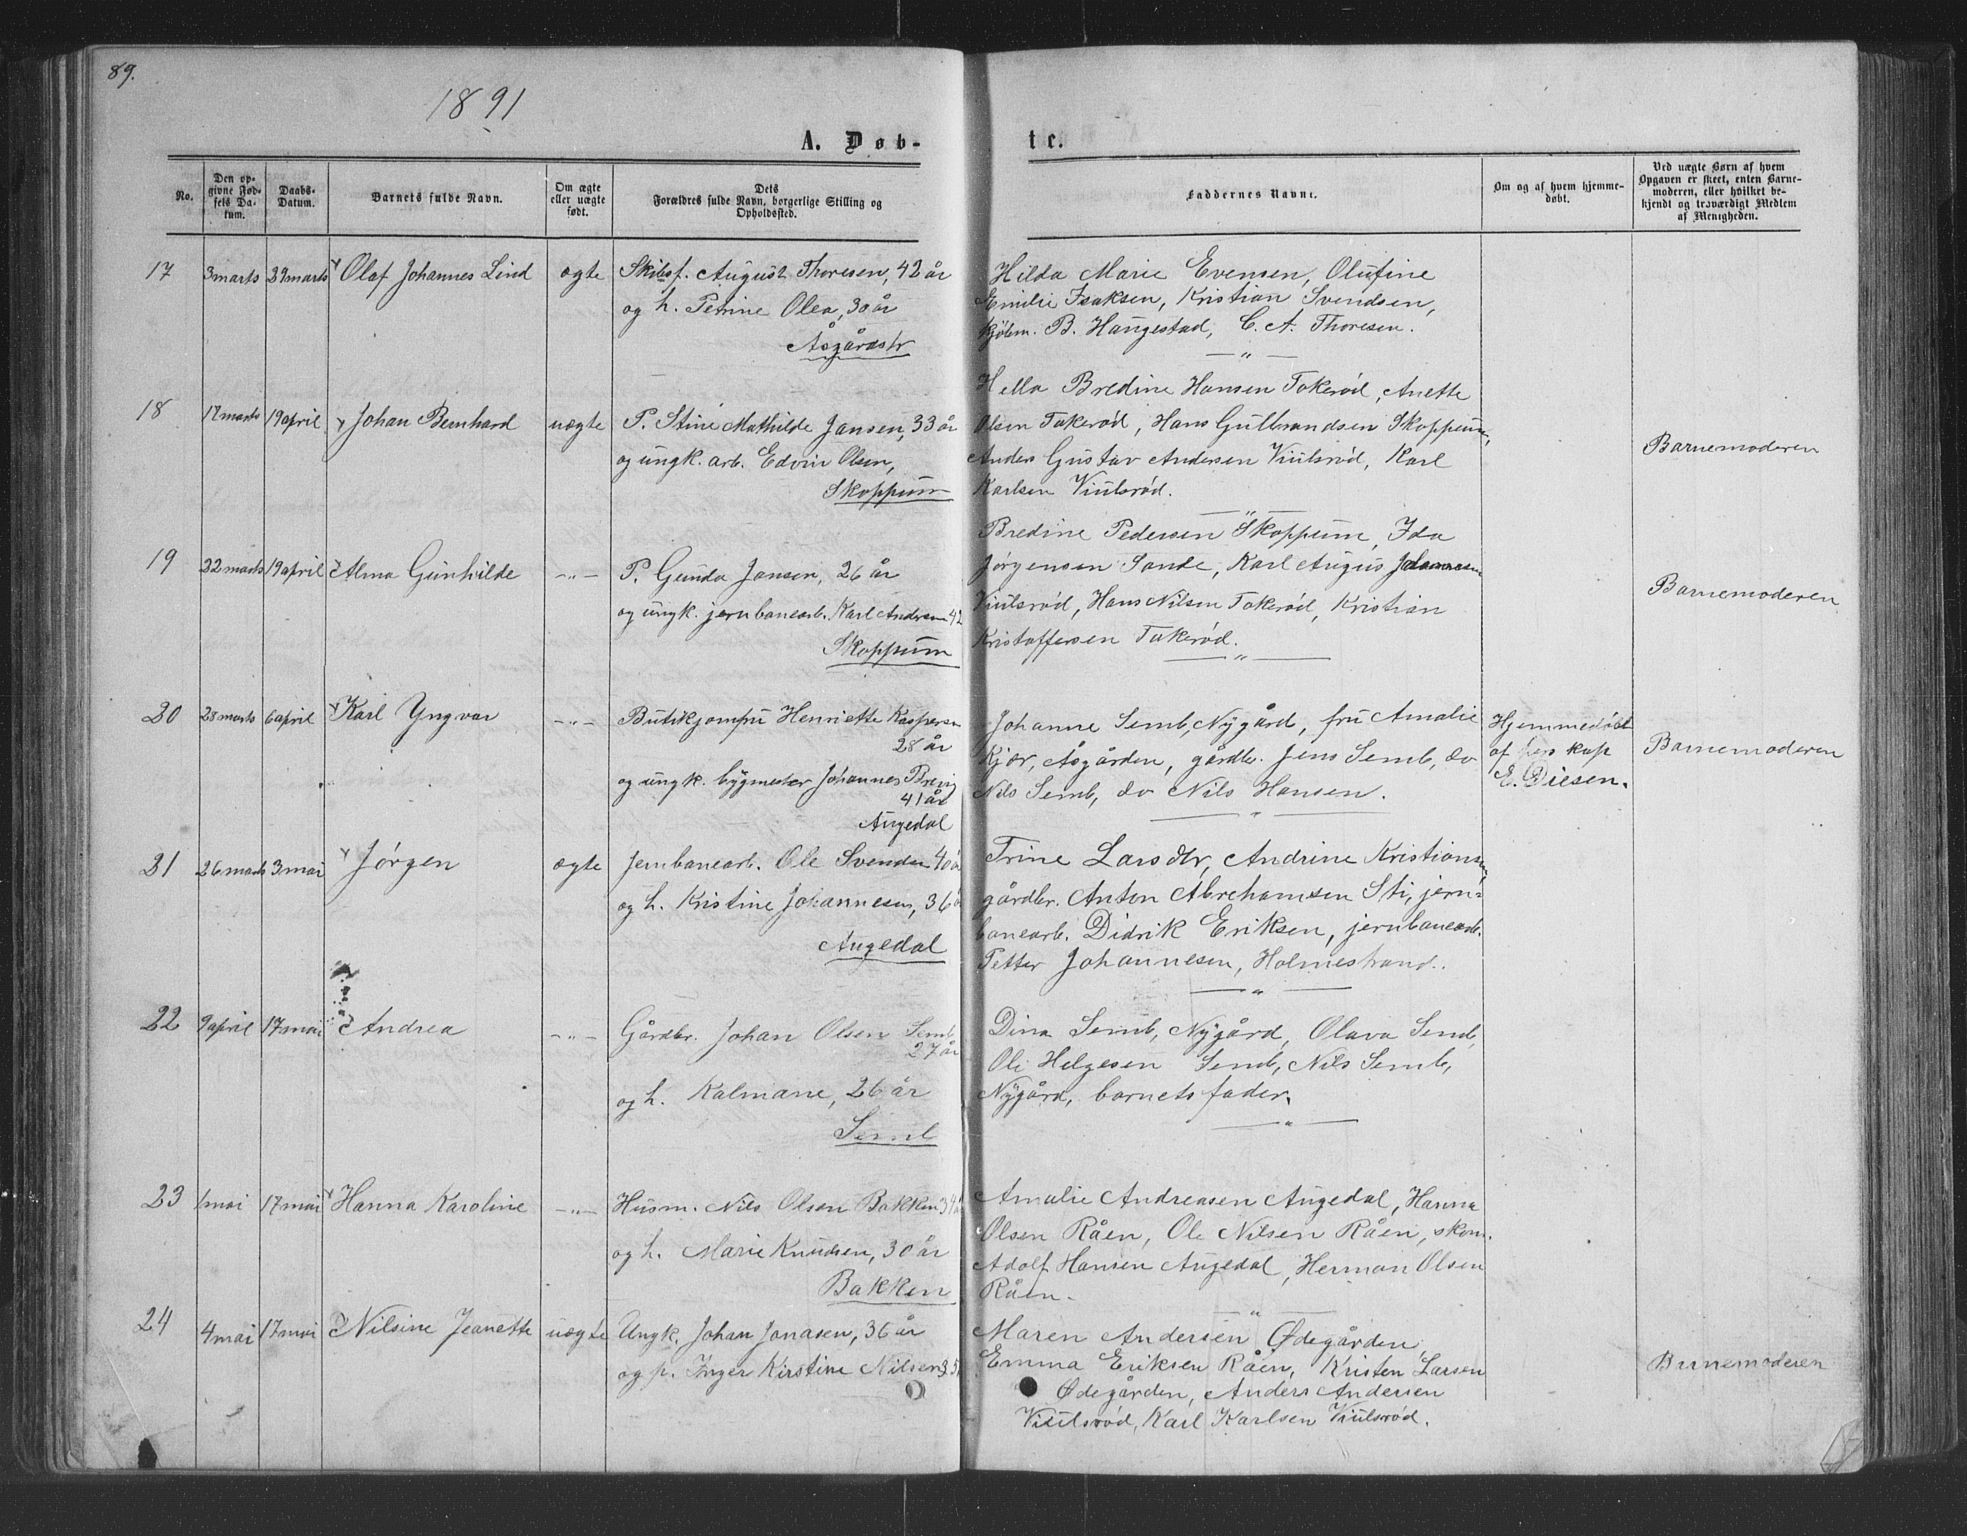 89.
1891
A. Døb-
te.
No.
Den op-
givne Fød-
sels Da-
tum.
Daabs-
Datum.
Barnets fulde Navn.
Om ægte
eller uægte
født.
Dets
Forældres fulde Navn, borgerlige Stilling og
Opholdssted.
Faddernes Navne.
Om og af hvem hjemme-
døbt.
Ved uægte Børn af hvem
Opgaven er skeet, enten Barne-
moderen, eller hvilket be-
kjendt og troværdigt Medlem
af Menigheden.
17
3 marts
29 marts
Olaf Johannes Lind
ægte
Skibsf. August Thoresen, 42 år
og h. Petrine Olea, 30 år
Åsgårdstr
Hilda Marie Evensen, Olufine
Emilie Isaksen, Kristian Svendsen,
kjøbm. B. Haugestad, C. A. Thoresen.
18
17 marts
19 april
Johan Bernhard
uægte
P. Stine Mathilde Jansen, 33 år
og ungk. arb. Edvin Olsen,
Skoppum
Hella Bredine Hansen Takerød, Anette
Olsen Takerød, Hans Gulbrandsen Skoppum,
Anders Gustav Andersen Viulsrød, Karl
Karlsen Viulsrød.
Barnemoderen
19
22 marts
19 april
Alma Gunhilde
-"-
P. Gunda Jansen, 26 år
og ungk. jernbanearb. Karl Andersen 42
Skoppum
Bredine Pedersen Skoppum, Ida
Jørgensen Sande, Karl Augus Johannesen
Viulsrød, Hans Nilsen Takerød, Kristian
Kristoffersen Takerød.
Barnemoderen
20
28 marts
6 april
Karl Yngvar
-"-
Butikjomfru Henriette Kaspersen
28 år
og ungk. bygmester Johannes Brevig
41 år
Augedal
Johanne Semb, Nygård, fru Amalie
Kjær, Åsgården, gårdbr. Jens Semb, do
Nils Semb, do Nils Hansen.
Hjemmedøbt
af pers kap
E. Diesen.
Barnemoderen
21
26 marts
3 mai
Jørgen
ægte
Jernbanearb. Ole Svendsen 40 år
og h. Kristine Johannesen, 36 å
Augedal
Trine Larsdtr, Andrine Kristiansen,
gårdbr. Anton Abrahamsen Sti, jern-
banearb. Didrik Eriksen, jernbanearb.
Petter Johannesen, Holmestrand.
22
9 april
17 mai
Andrea
-"-
Gårdbr. Johan Olsen Semb
27 år
og h. Kalmane, 26 år
Semb
Dina Semb, Nygård, Olava Semb,
Ole Helgesen Semb, Nils Semb,
Nygård, barnets fader.
23
1 mai
17 mai
Hanna Karoline
-"-
Husm. Nils Olsen Bakken 34 å
og h. Marie Knudsen, 30 år
Bakken
Amalie Andreasen Augedal, Hanna
Olsen Råen, Ole Nilsen Råen, skom.
Adolf Hansen Augedal, Herman Olsen
Råen.
24
4 mai
17 mai
Nilsine Jeanette
uægte
Ungk. Johan Jonasen, 36 år
og p. Inger Kirstine Nilsen, 35
Maren Andersen Ødegården,
Emma Eriksen Råen, Kristen Larsen
Ødegården, Anders Andersen
Viulsrød, Karl Karlsen Viulsrød.
Barnemoderen